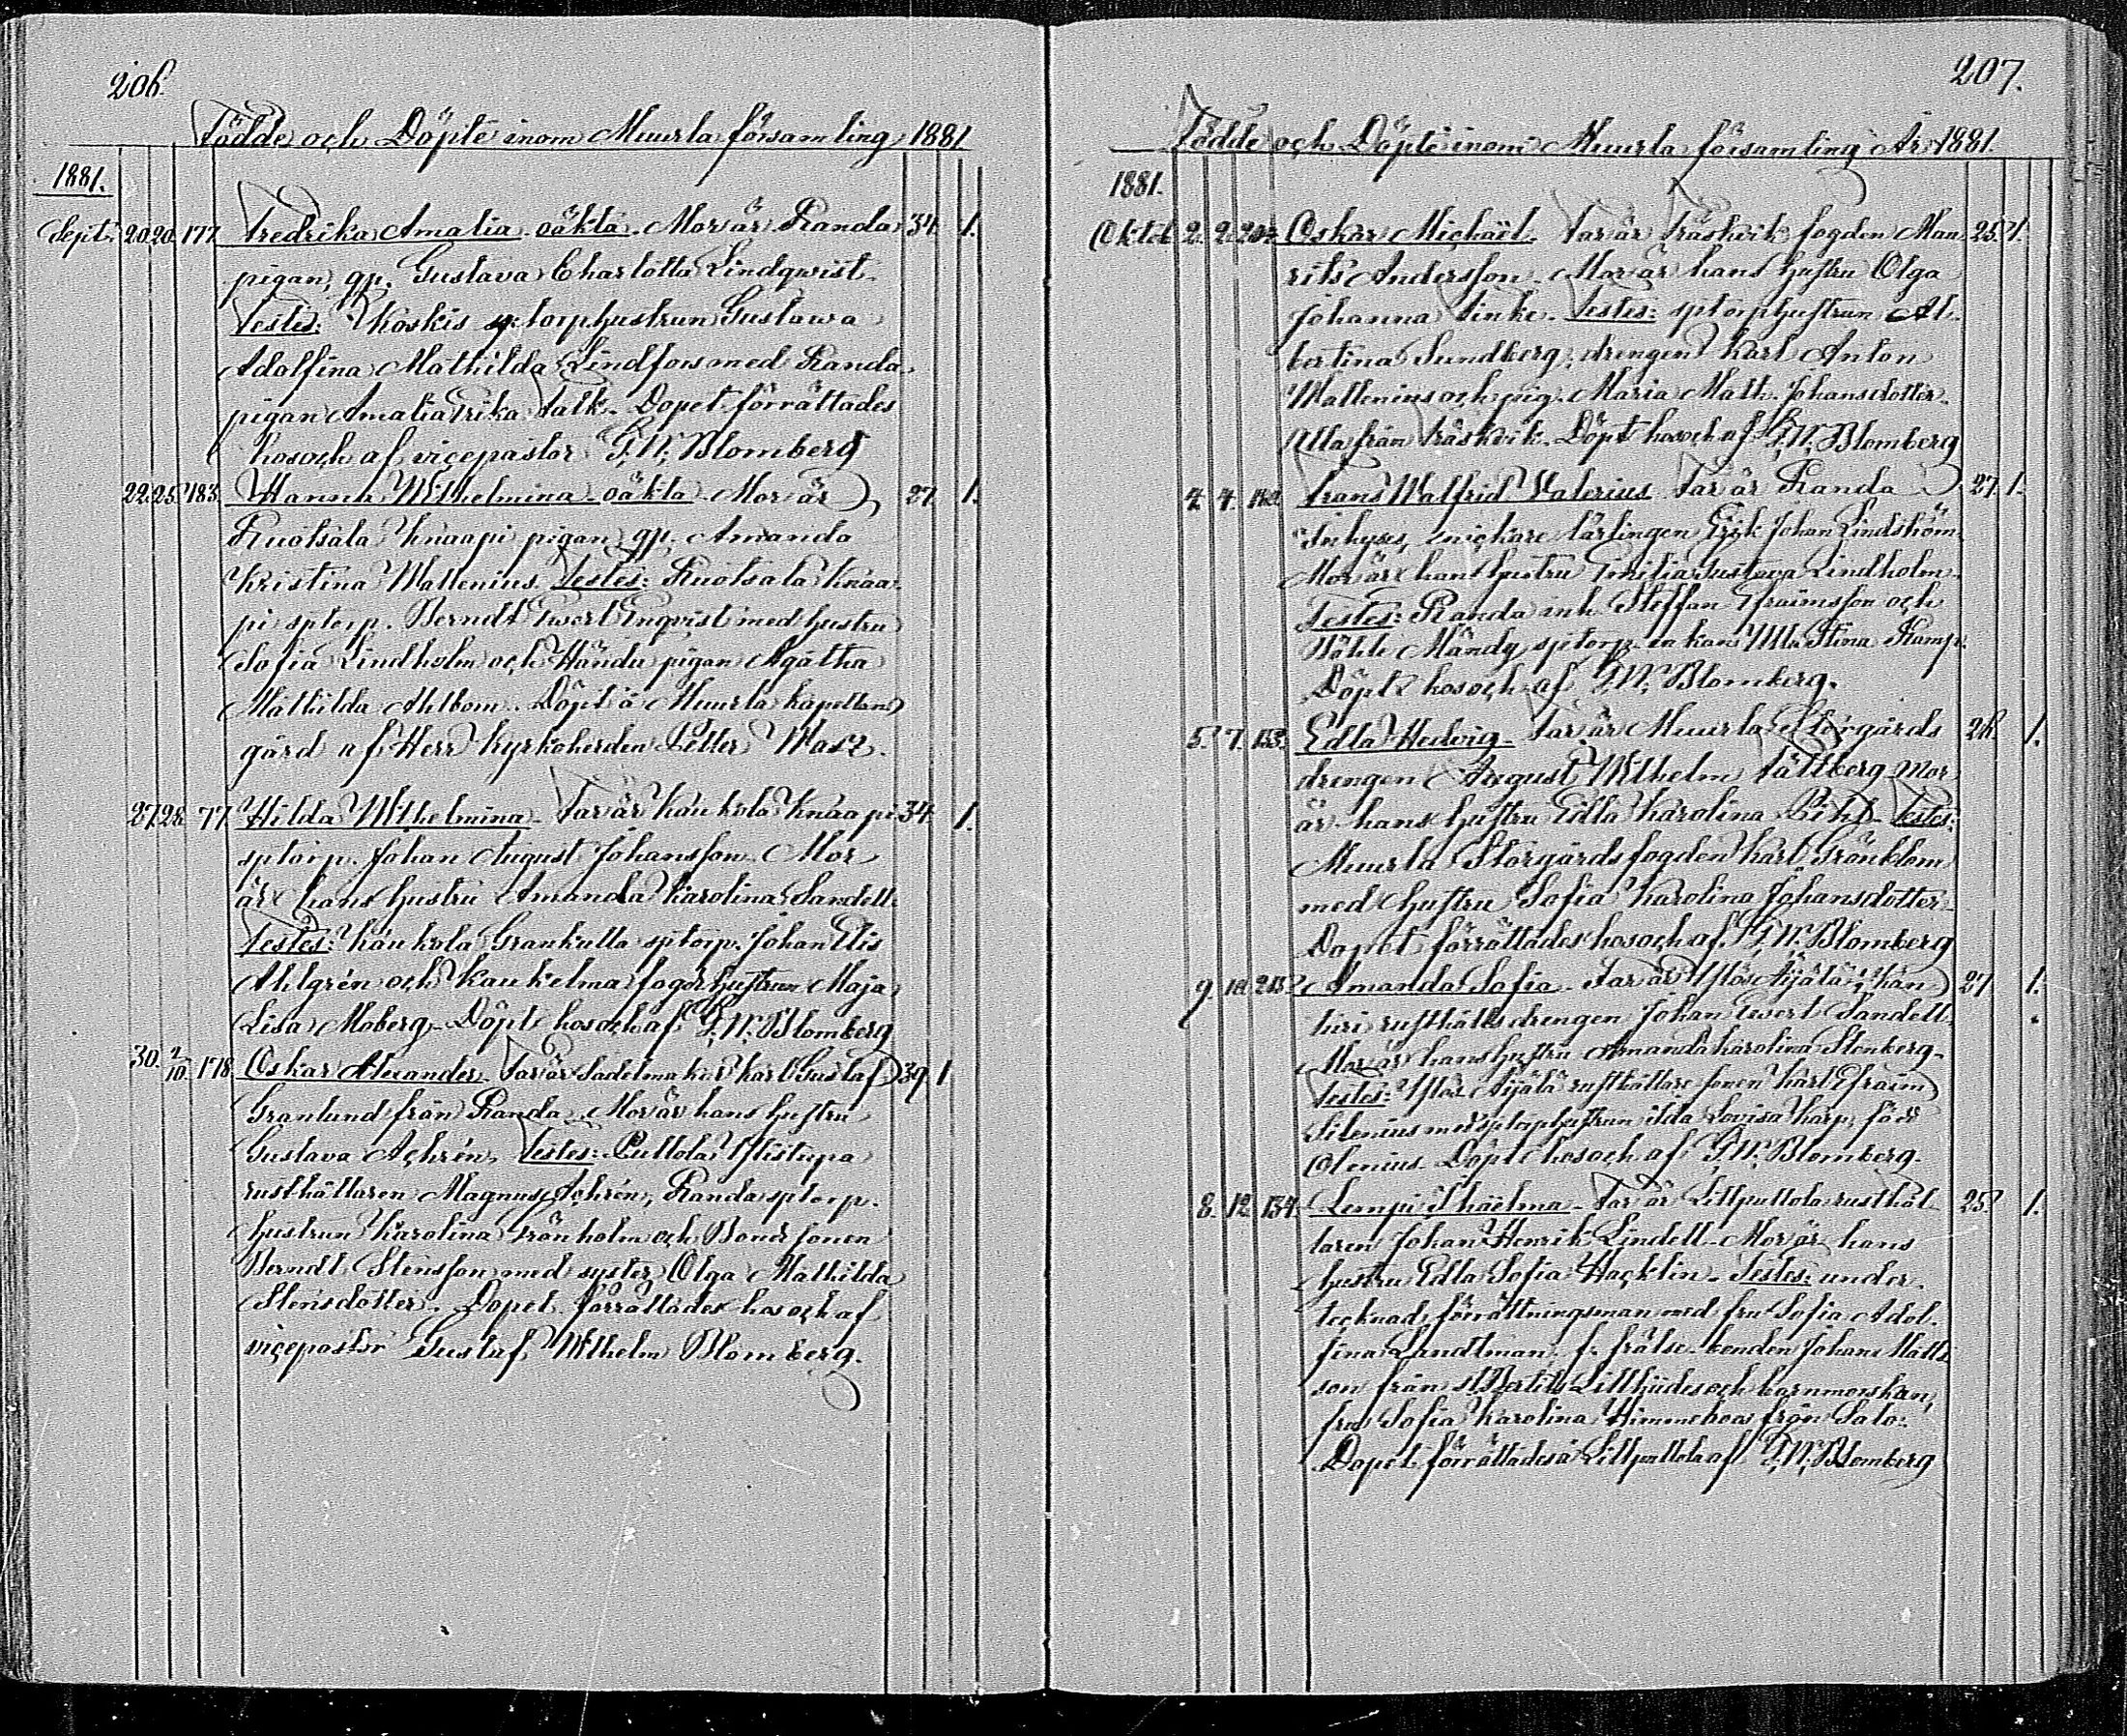 206.
Födde och Döpte inom Muurla församling 1881
1881.
Sept. 20. 20. 177. Fredrika Amalia oäkta. Mor är Randa 34. 1.
pigan, gp. Gustava Charlotta Lindqwist.
Testes: Koskis sptorphustrun Gustawa
Adolfina Mathilda Lindfors med Randa
pigan Amalia Frika Falk. Dopet förrättades
hos och af vicepastor G. W. Blomberg
22. 25. 183. Hanna Wilhelmina oäkta. Mor är 27. 1.
Ruotsala Knaapi pigan gp. Amanda
Kristina Wallenius. Testes: Ruotsala Knaa-
pi sptorp. Berndt Ewert Enqvist med hustru
Sofia Lindholm och Hända pigan Agatha
Mathilda Ahlbom. Döpt å Muurla kapellans
gård af Herr Kyrkoherden Petter
27. 28. 77. Hilda Wilhelmina. Far är Kaukola Knaapi 34. 1.
sptorp. Johan August Johansson. Mor
är hans hustru Amanda Karolina Sandell.
Testes: Kaukola Grankulla sptorp. Johan Elis
Ahlgrén och Kaukelma fogdhustrun Maja
Lisa Moberg. Döpt hos och af G. W. Blomberg
30. 2/10. 178. Oskar Alexander. Far är Sadelmakar Karl Gustaf 39. 1
Granlund från Randa. Mor är hans hustru
Gustava Achrén. Testes: Pullola Ylistupa
rusthållaren Magnus Achrén, Randa sptorp.
hustrun Karolina Grönholm och Bondsonen
Berndt Stensson med syster Olga Mathilda
Stensdotter. Dopet förrättades hos och af
vicepastor Gustaf Wilhelm Blomberg.
207.
Födde och Döpte inom Muurla församling År 1881.
1881.
Oktob. 2. 2. Oskar Michaël. Far är Träskvik fogden Mau- 25. 1.
rits Andersson. Mor är hans hustru Olga
Johanna Finke. Testes: sptorphustrun Al-
bertina Sundberg, drengen Karl Anton
Wallenius och pig. Maria Math. Johansdotter.
Alla från Träskvik. Döpt hos och af G. W. Blomberg
4. 4. Frans Walfrid Valerius. Far är Randa 27. 1.
inhyses, snickare lärlingen Erik Johan Lindström.
Mor är hans hustru Emilia Gustava Lindholm.
Testes: Randa inh. Steffan Efraimsson och
Mändy sptorp. enkan Ulla Stina Kamp.
Döpt hos och af G. W. Blomberg.
5. 7. 153. Edla Hedvig. Far är Muurla Storgårds 26. 1.
drengen August Wilhelm Fällberg. Mor
är hans hustru Edla Karolina Pihl. Testes:
Muurla Storgårds fogden Karl Grönblom
med hustru Sofia Karolina Johansdotter.
Dopet förrättades hos och af G. W. Blomberg
9. 10. Amanda Sofia. Far är Ylös Äijälä i Kan- 27 1.
türi rusthålls drengen Johan Ewert Sandell.
Mor är hans hustru Amanda Karolina Stenberg.
Testes: Ylös Äijälä rusthållare sonen Karl Efraim
Silenius med sptorphustrun Ida Lovisa Karp, född
Olenius. Döpt hos och af G. W. Blomberg.
8. 12. 134. Lempi Thäelma. Far är Lillpullola rusthål- 25. 1.
laren Johan Henrik Lindell. Mor är hans
hustru Edla Sofia Hacklin. Testes: under-
tecknad förrättningsman med fru Sofia Adol-
fina Landtman, f. frälse bonden Johan Matts-
son från St Bertils Lillhüdes och barnmorskan,
fru Sofia Karolina från Salo.
Dopet förrättades å Lillpullola af G. W. Blomberg